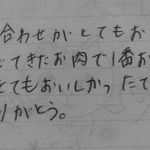 合わせがとてもお
てきたお肉で1番お
とてもおいしかったて
りがとう。